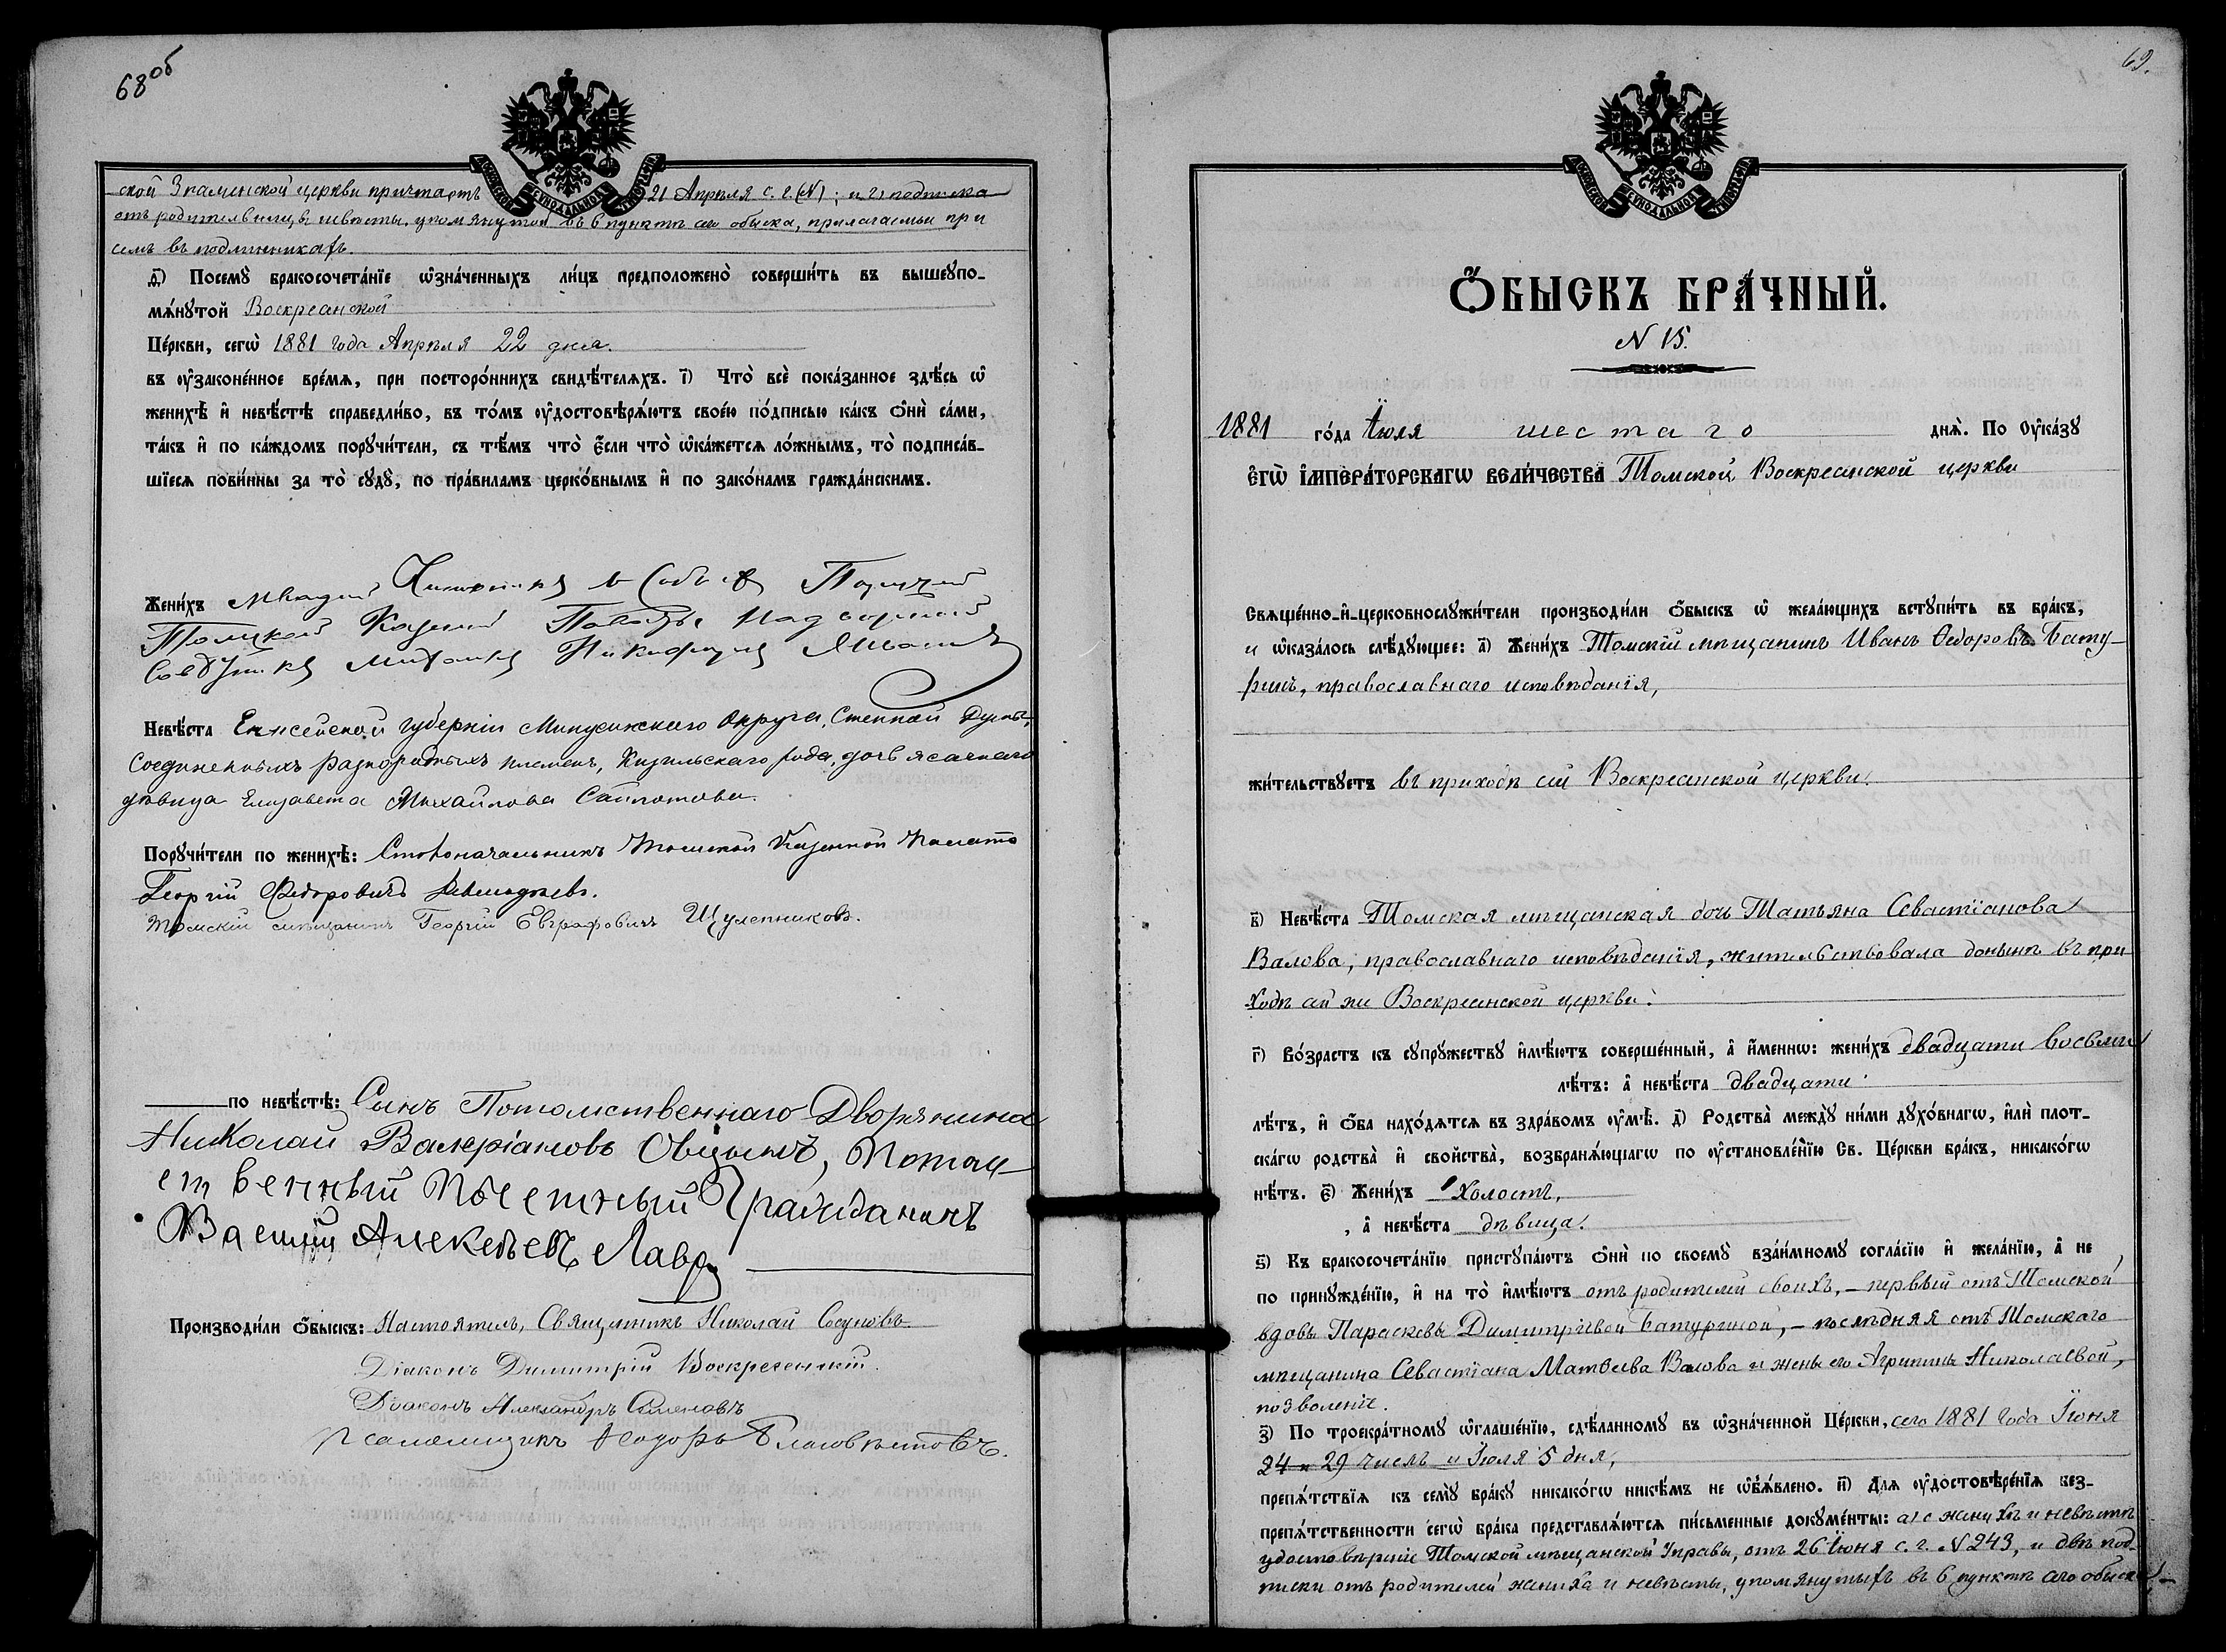 68об
ской Знаменской церкви причтомъ 21 Апрѣля с. г. (N) ; и 2) подписка
отъ родительницы невѣсты, упомянутой въ 6 пунктѣ сего обыска, прилагаемыя при
семъ въ подлинникахъ.
д҃) Посемꙋ̀ бракосочета́нїе ѡ҆зна́ченныхъ ли́цъ предположено̀ соверши́ть въ вышеꙋпо-
мѧ́нꙋтой Воскресенской
Це́ркви, сегѡ̀ 1881 года Апрѣля 22 дня.
въ ᲂу҆законе́нное вре́мѧ, при посторо́ннихъ свидѣ́телѧхъ. і҃) Что̀ всѐ пока́занное здѣ́сь ѡ҆
женихѣ̀ и҆ невѣ́стѣ справедли́во, въ то́мъ ᲂу҆достовѣрѧ́ютъ свое́ю по́дписью ка́къ ѻ҆нѝ са́ми,
та́къ и҆ по ка́ждомъ порꙋчи́тели, съ тѣ́мъ что̀ є҆́сли что̀ ѡ҆ка́жетсѧ ло́жнымъ, то̀ подписа́в-
шїесѧ пови́нны за то̀ сꙋдꙋ̀, по пра́виламъ церко́внымъ и҆ по зако́намъ гражда́нскимъ.
Жени́хъ
Томской Казенной Палаты Надворный
Невѣ́ста Енисейской губерніи Минусинскаго Округа, Степной Думы
Соединенныхъ разнородныхъ племенъ, Кизильскаго рода, дочь ясачнаго
дѣвица Елизавета Михайлова Сайлотова.
Порꙋчи́тели по женихѣ̀: Столоначальникъ Томской Казенной Палаты
Георгій Федоровичъ
Томскій мѣщанинъ Георгій Евграфовичъ Щулепниковъ.
по невѣ́стѣ: Сынъ Потомственнаго Дворянина
Николай Валеріановъ Овцынъ, Потом-
ственный Почетный Гражданинъ
Василій Алексѣевъ Лавр
Производи́ли ѻ҆́быскъ: Настоятель, Священникъ Николай Сосуновъ
Діаконъ Димитрій Воскресенскій.
Діаконъ Александръ Семеновъ
Псаломщикъ Ѳеодоръ Благовѣстовъ.
69.
Ѻ҆́БЫСКЪ БРА́ЧНЫЙ.
N 15.
1881 го́да Іюля шестаго днѧ̀. По Оу҆ка́зꙋ
Є҆ГѠ̀ І҆МПЕРА́ТОРСКАГѠ ВЕЛИ́ЧЕСТВА Томской Воскресенской церкви
Свѧще́нно-и҆-церковнослꙋжи́тели производи́ли ѻ҆́быскъ ѡ҆ жела́ющихъ встꙋпи́ть въ бра́къ,
и ѡ҆каза́лось слѣ́дꙋющее: а҃) Жени́хъ Томскій мѣщанинъ Иванъ Ѳедоровъ Бату-
ринъ, православнаго исповѣданія,
жи́тельствꙋетъ въ приходѣ сей Воскресенской церкви.
в҃) Невѣ́ста Томская мѣщанская дочь Татьяна Севастіанова
Валова, православнаго исповѣданія, жительствовала донынѣ въ при
ходѣ сей же Воскресенской церкви.
г҃) Во́зрастъ къ сꙋпрꙋ́жествꙋ и҆мѣ́ютъ соверше́нный, а҆ и҆́меннѡ: жени́хъ двадцати восьми
лѣ́тъ: а҆ невѣ́ста двадцати
лѣ́тъ, и҆ ѻ҆́ба нахо́дѧтсѧ въ здра́вомъ ᲂу҆мѣ̀. д҃) Родства̀ междꙋ̀ ни́ми дꙋхо́внагѡ, и҆лѝ плот-
ска́гѡ родства̀ и҆ свойства̀, возбранѧ́ющагѡ по ᲂу҆становле́нїю Св. Це́ркви бра́къ, никако́гѡ
нѣ́тъ. є҃) Жени́хъ холостъ,
, а҆ невѣ́ста дѣвица.
ѕ҃) Къ бракосочета́нїю пристꙋпа́ютъ ѻ҆нѝ по своемꙋ̀ взаи́мномꙋ согла́сїю и҆ жела́нїю, а҆ не
по принꙋжде́нїю, и҆ на то̀ и҆мѣ́ютъ отъ родителей своихъ, – первый отъ Томской
вдовы Парасковьи Димитріевой Батуриной, – послѣдняя отъ Томскаго
мѣщанина Севастіана Матвѣева Валова и жены его Агрипины Николаевой,
позволеніе.
з҃) По троекра́тномꙋ ѡ҆глаше́нїю, сдѣ́ланномꙋ въ ѡ҆зна́ченной Це́ркви, сего 1881 года Іюня
24 и 29 числъ и Іюля 5 дня,
препѧ́тствїѧ къ семꙋ̀ бра́кꙋ никако́гѡ никѣ́мъ не ѡ҆б̾ѧ́влено. и҃) Длѧ ᲂу҆достовѣре́нїѧ без-
препѧ́тственности сегѡ̀ бра́ка представлѧ́ютсѧ пи́сьменные докꙋме́нты: а) о женихѣ и невѣстѣ
удостовѣреніе Томской мѣщанской Управы, отъ 26 Іюня с. г. N 243, и двѣ под-
писки отъ родителей жениха и невѣсты, упомянутыхъ въ 6 пунктѣ сего обыска,